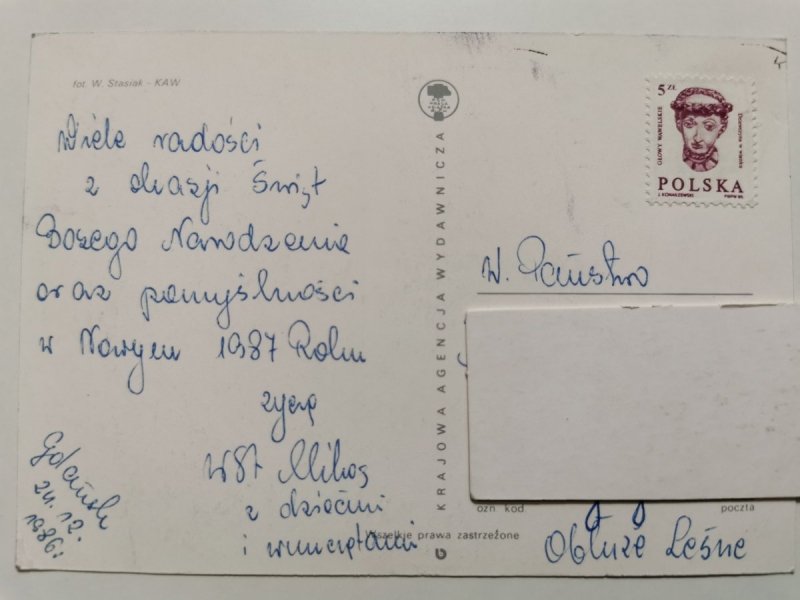 fot. W. Stasiak - KAW
Wiele radości
z okazji Świąt
Bożego Narodzenia
oraz pomyślności
w Nowym 1987 Roku
życzą
WST Mikos
z dziećmi
i wnuczętami
Gdańsk
24.12.
1986.
KRAJOWA AGENCJA WYDAWNICZA
Wszelkie prawa zastrzeżone
5 ZŁ
GŁOWY WAWELSKIE
Dziewczyna w wianku
POLSKA
J. KONARZEWSKI
PWPW 85
W. Państwo
ozn kod
poczta
Obłuże Leśne